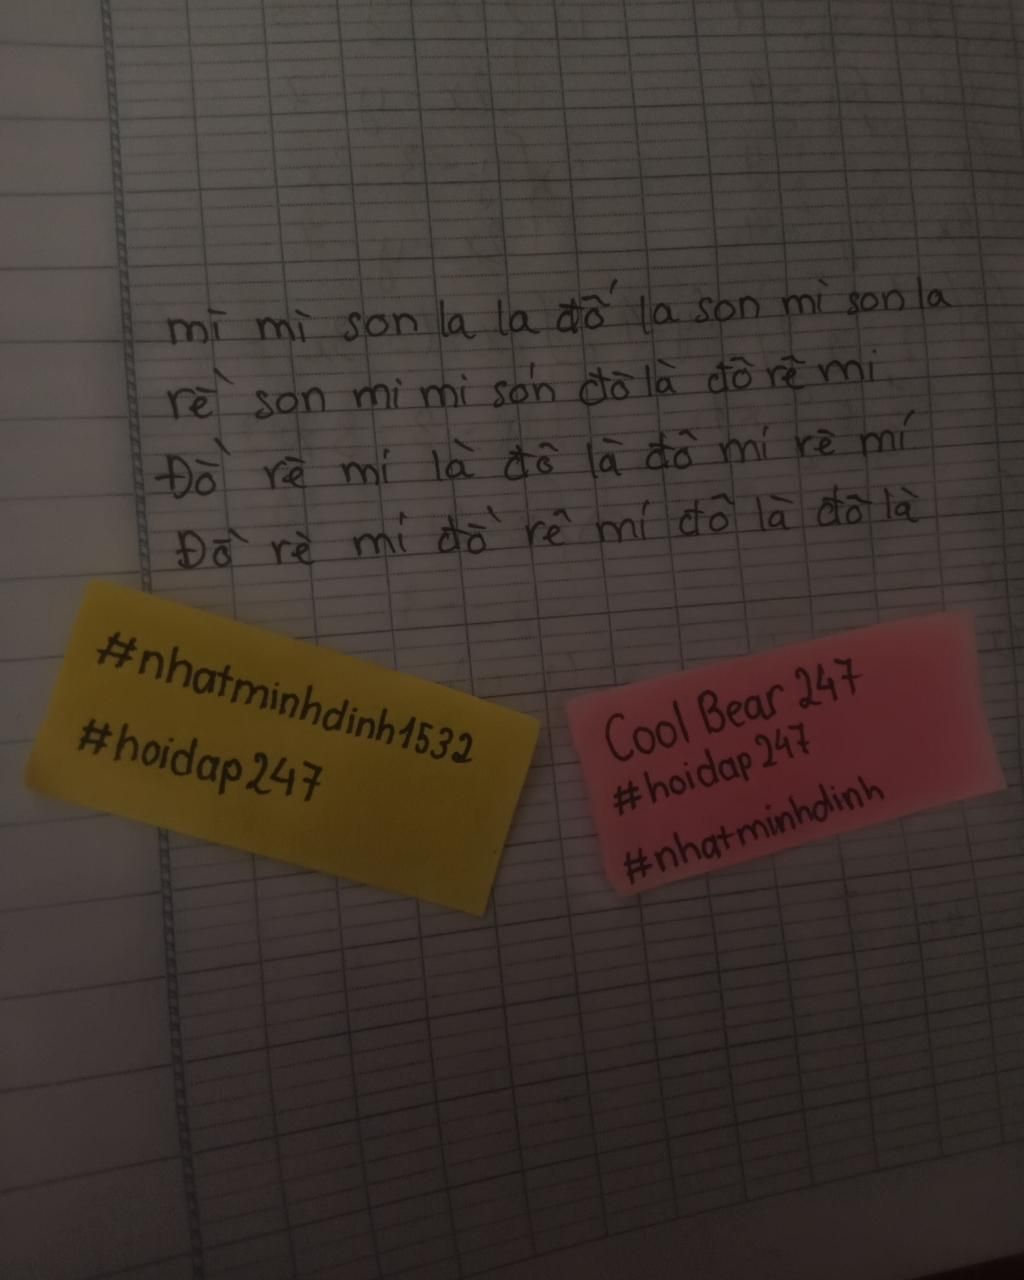 mi mi son la la đố la son mi son la
rề son mi mi són đô là đô rê mi
Đồ rê mi là đô là đô mi rê mí
Đồ rê mi đồ rê mi đô là đô là
#nhatminhdinh1532
#hoidap247
Cool Bear 247
#hoidap247
#nhatminhdinh